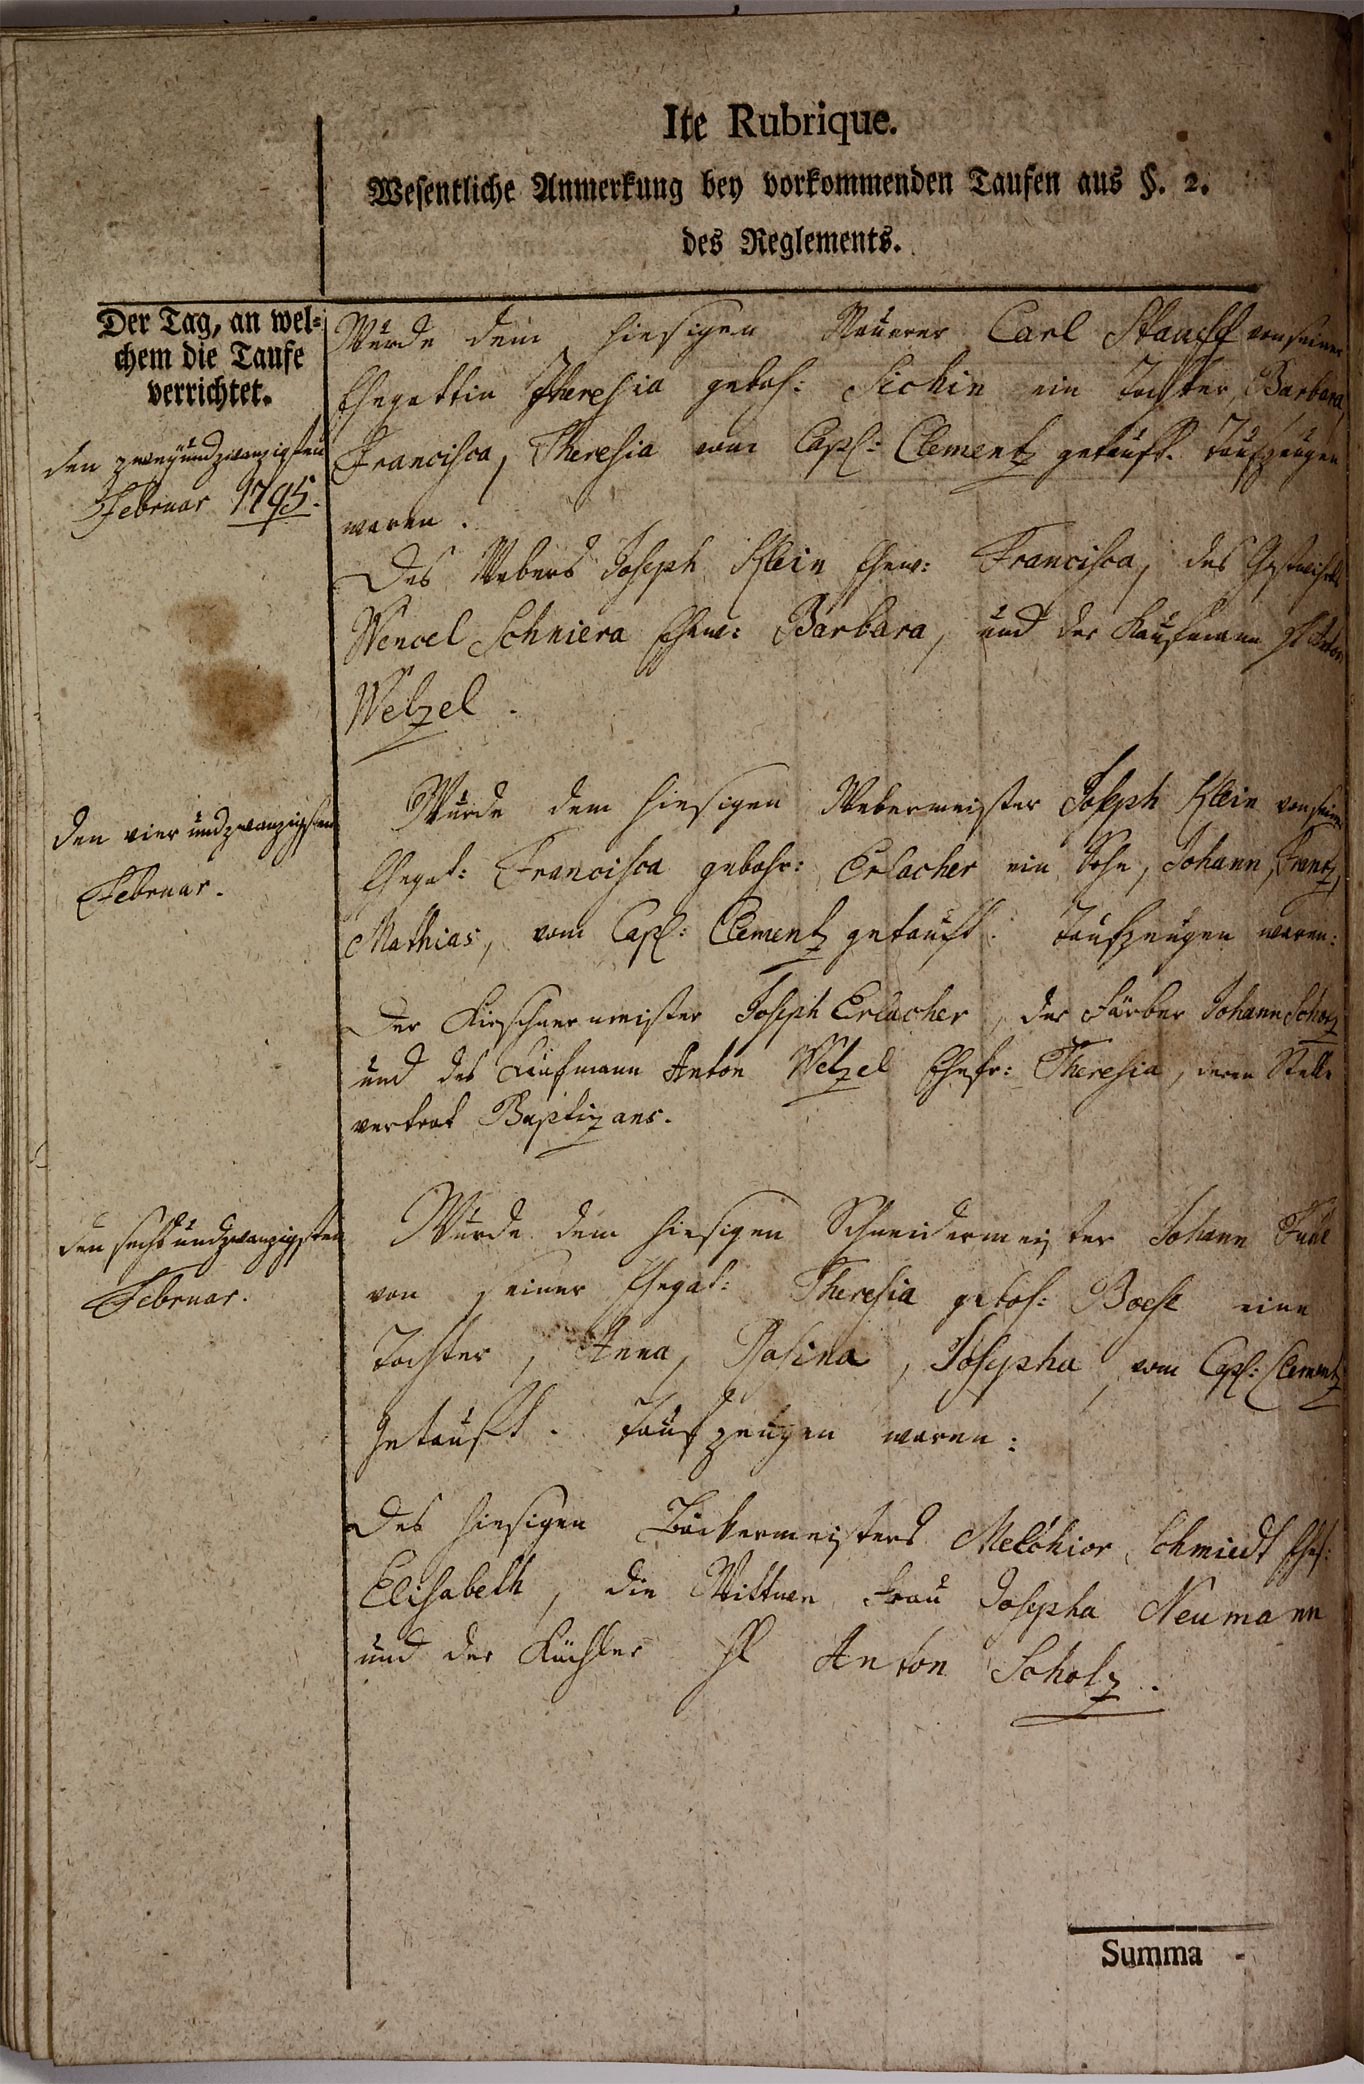 Ite Rubrique.
Wesentliche Anmerkung bey vorkommenden Taufen aus §. 2.
des Reglements.
Der Tag, an wel-
chem die Taufe
verrichtet.
den zweyundzwanzigsten
Februar 1795.
Wurde dem hiesigen Maurer Carl Stauff von seiner
Ehegattin Theresia geboh: Sichin ein Tochter, Barbara,
Francisca, Theresia vom Capl: Clementz getauft. Taufzeugen
waren.
Des Webers Joseph Klein Ehew: Francisca, des
Wencel Schniera Ehew: Barbara, und der Kaufmann H Anton
Welzel.
den vier undzwanzigsten
Februar.
Wurde dem hiesigen Webermeister Joseph Klein von seiner
Ehegat: Francisca gebohr: Erlacher ein Sohn, Johann, Frantz,
Mathias, vom Capl: Clementz getauft. Taufzeugen waren:
Der Kirschnermeister Joseph Erlacher, der Färber Johann Scholz
und des Kaufmann Anton Welzel Ehefr: Theresia, deren Stelle
vertrat Baptizans.
den sechs undzwanzigsten
Februar.
Wurde dem hiesigen Schneidermeister Johann
von seiner Ehegat: Theresia geboh: Boese eine
Tochter, Anna, Rosina, Josepha, vom Capl: Clementz
getauft. Taufzeugen waren:
Des hiesigen Bäckermeisters Melchior Schmiedt Ehef:
Elisabeth, die Wittwe Frau Josepha Neumann
und der Küchler H Anton Scholz.
Summa -